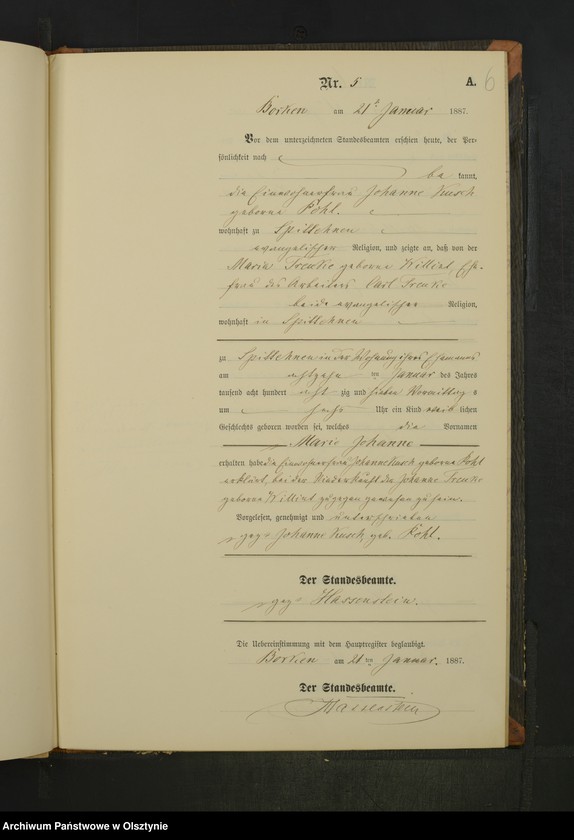 Nr. 5 A. 6
Borken am 21t Januar 1887.
Vor dem unterzeichneten Standesbeamten erschien heute, der Per-
sönlichkeit nach
be kannt,
die Einwohnerfrau Johanne Kusch
geborne Pohl.
wohnhaft zu Spittehnen
evangelischer Religion, und zeigte an, daß von der
Maria Frenke geborne Willint, Ehe-
frau des Arbeiters Carl Frenke
beide evangelischer Religion,
wohnhaft in Spittehnen
zu Spittehnen in der Wohnung ihres Ehemannes
am achtzehn ten Januar des Jahres
tausend acht hundert acht zig und sieben Vormittag s
um sechs Uhr ein Kind weib lichen
Geschlechts geboren worden sei, welches die Vornamen
Marie Johanne
erhalten habe die Einwohnerfrau Johanne Kusch geborne Pohl
erklärt, bei der Niederkunft der Johanne Frenke
geborne Willint zugegen gewesen zu sein.
Vorgelesen, genehmigt und unterschrieben
gez. Johanne Kusch, geb. Pohl.
Der Standesbeamte.
gez. Hassenstein.
Die Uebereinstimmung mit dem Hauptregister beglaubigt.
Borken am 21ten Januar. 1887.
Der Standesbeamte.
Hassenstein
Archiwum Państwowe w Olsztynie